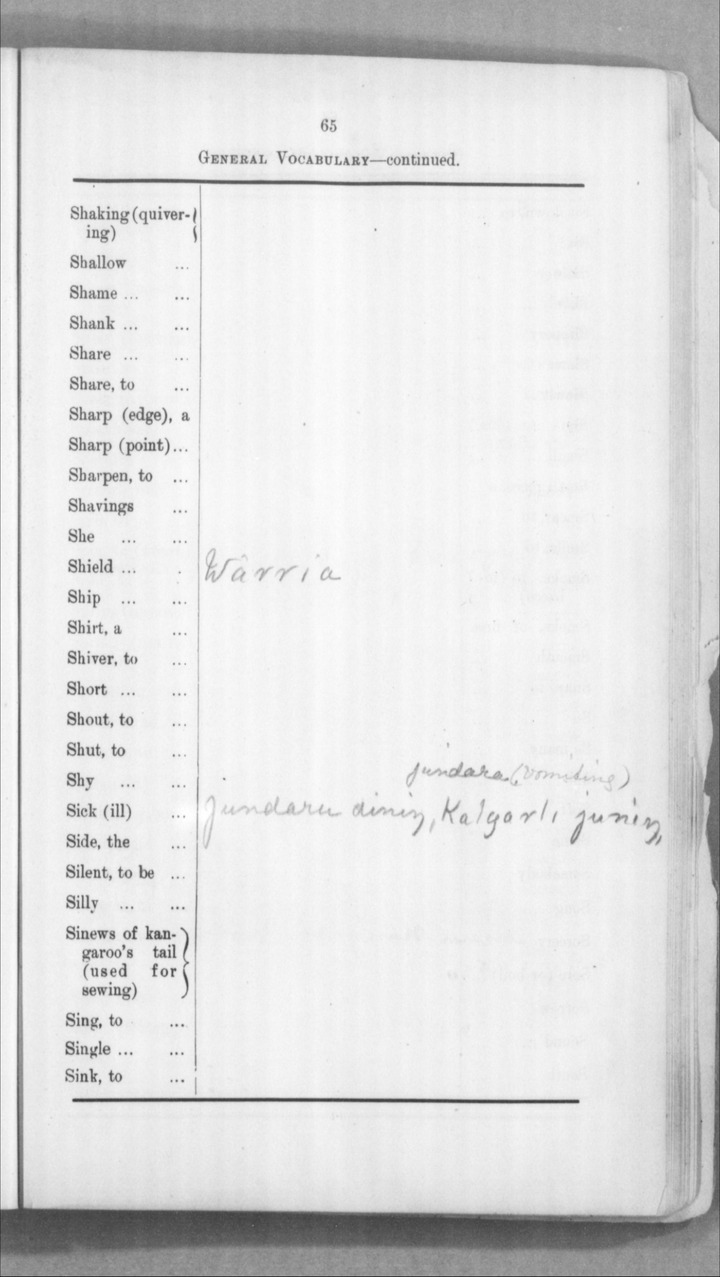 65
GENERAL VOCABULARY—continued.
Shaking (quiver-
ing)
Shallow ...
Shame ... ...
Shank ... ...
Share ... ...
Share, to ...
Sharp (edge), a
Sharp (point)...
Sharpen, to ...
Shavings ...
She ... ...
Shield ... . Wârria
Ship ... ...
Shirt, a ...
Shiver, to ...
Short ... ...
Shout, to ...
Shut, to ...
jundara (vomiting)
Shy ... ...
Sick (ill) ... jundaru dining, Kalgarli juning,
Side, the ...
Silent, to be ...
Silly ... ...
Sinews of kan-
garoo's tail
(used for
sewing)
Sing, to ...
Single ... ...
Sink, to ...